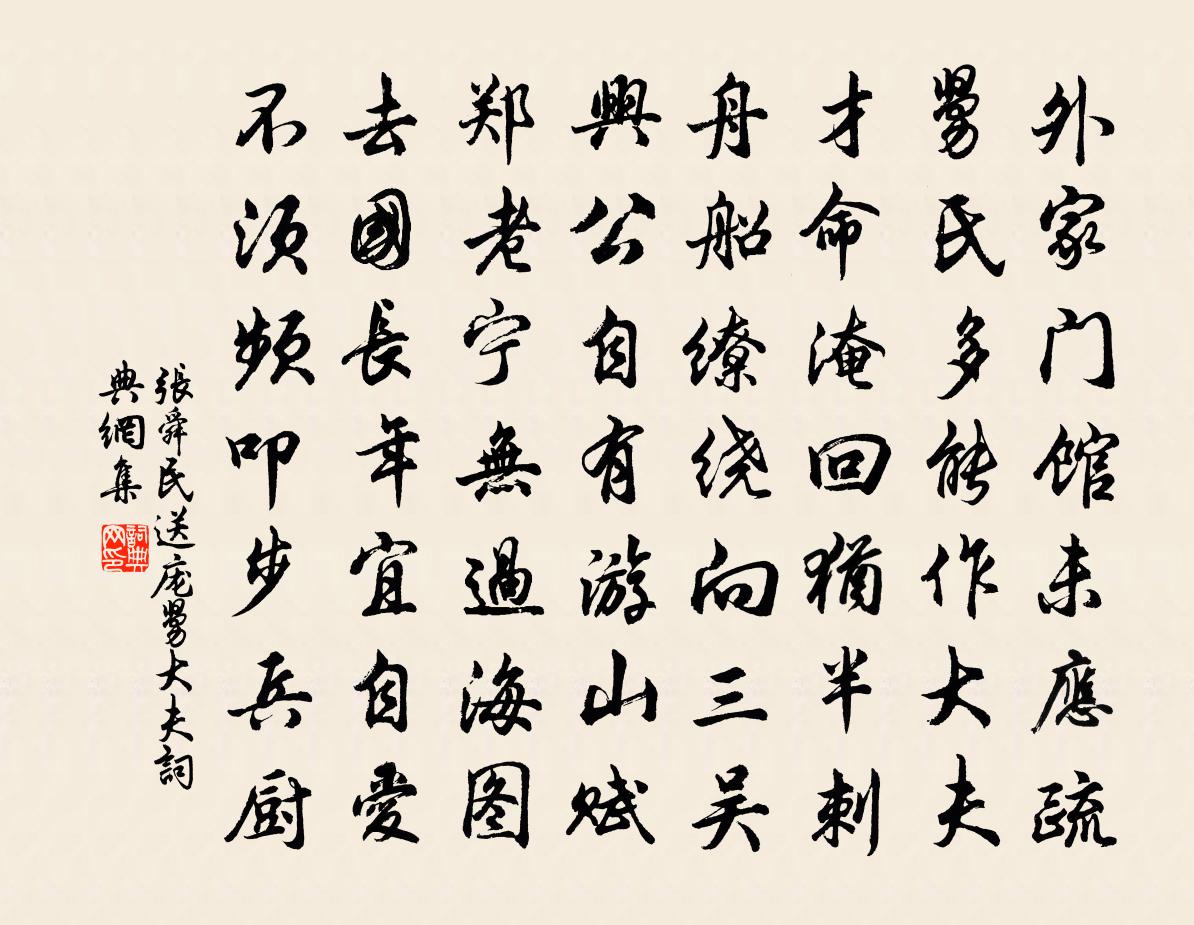 外家门馆未應疏
舅氏多能作大夫
才命淹回猶半刺
舟船缭绕向三吴
興公自有游山赋
郑老宁無過海图
去國長年宜自愛
不须频叩步兵厨
張舜民送庞舅大夫詞
典網集
詞典网印